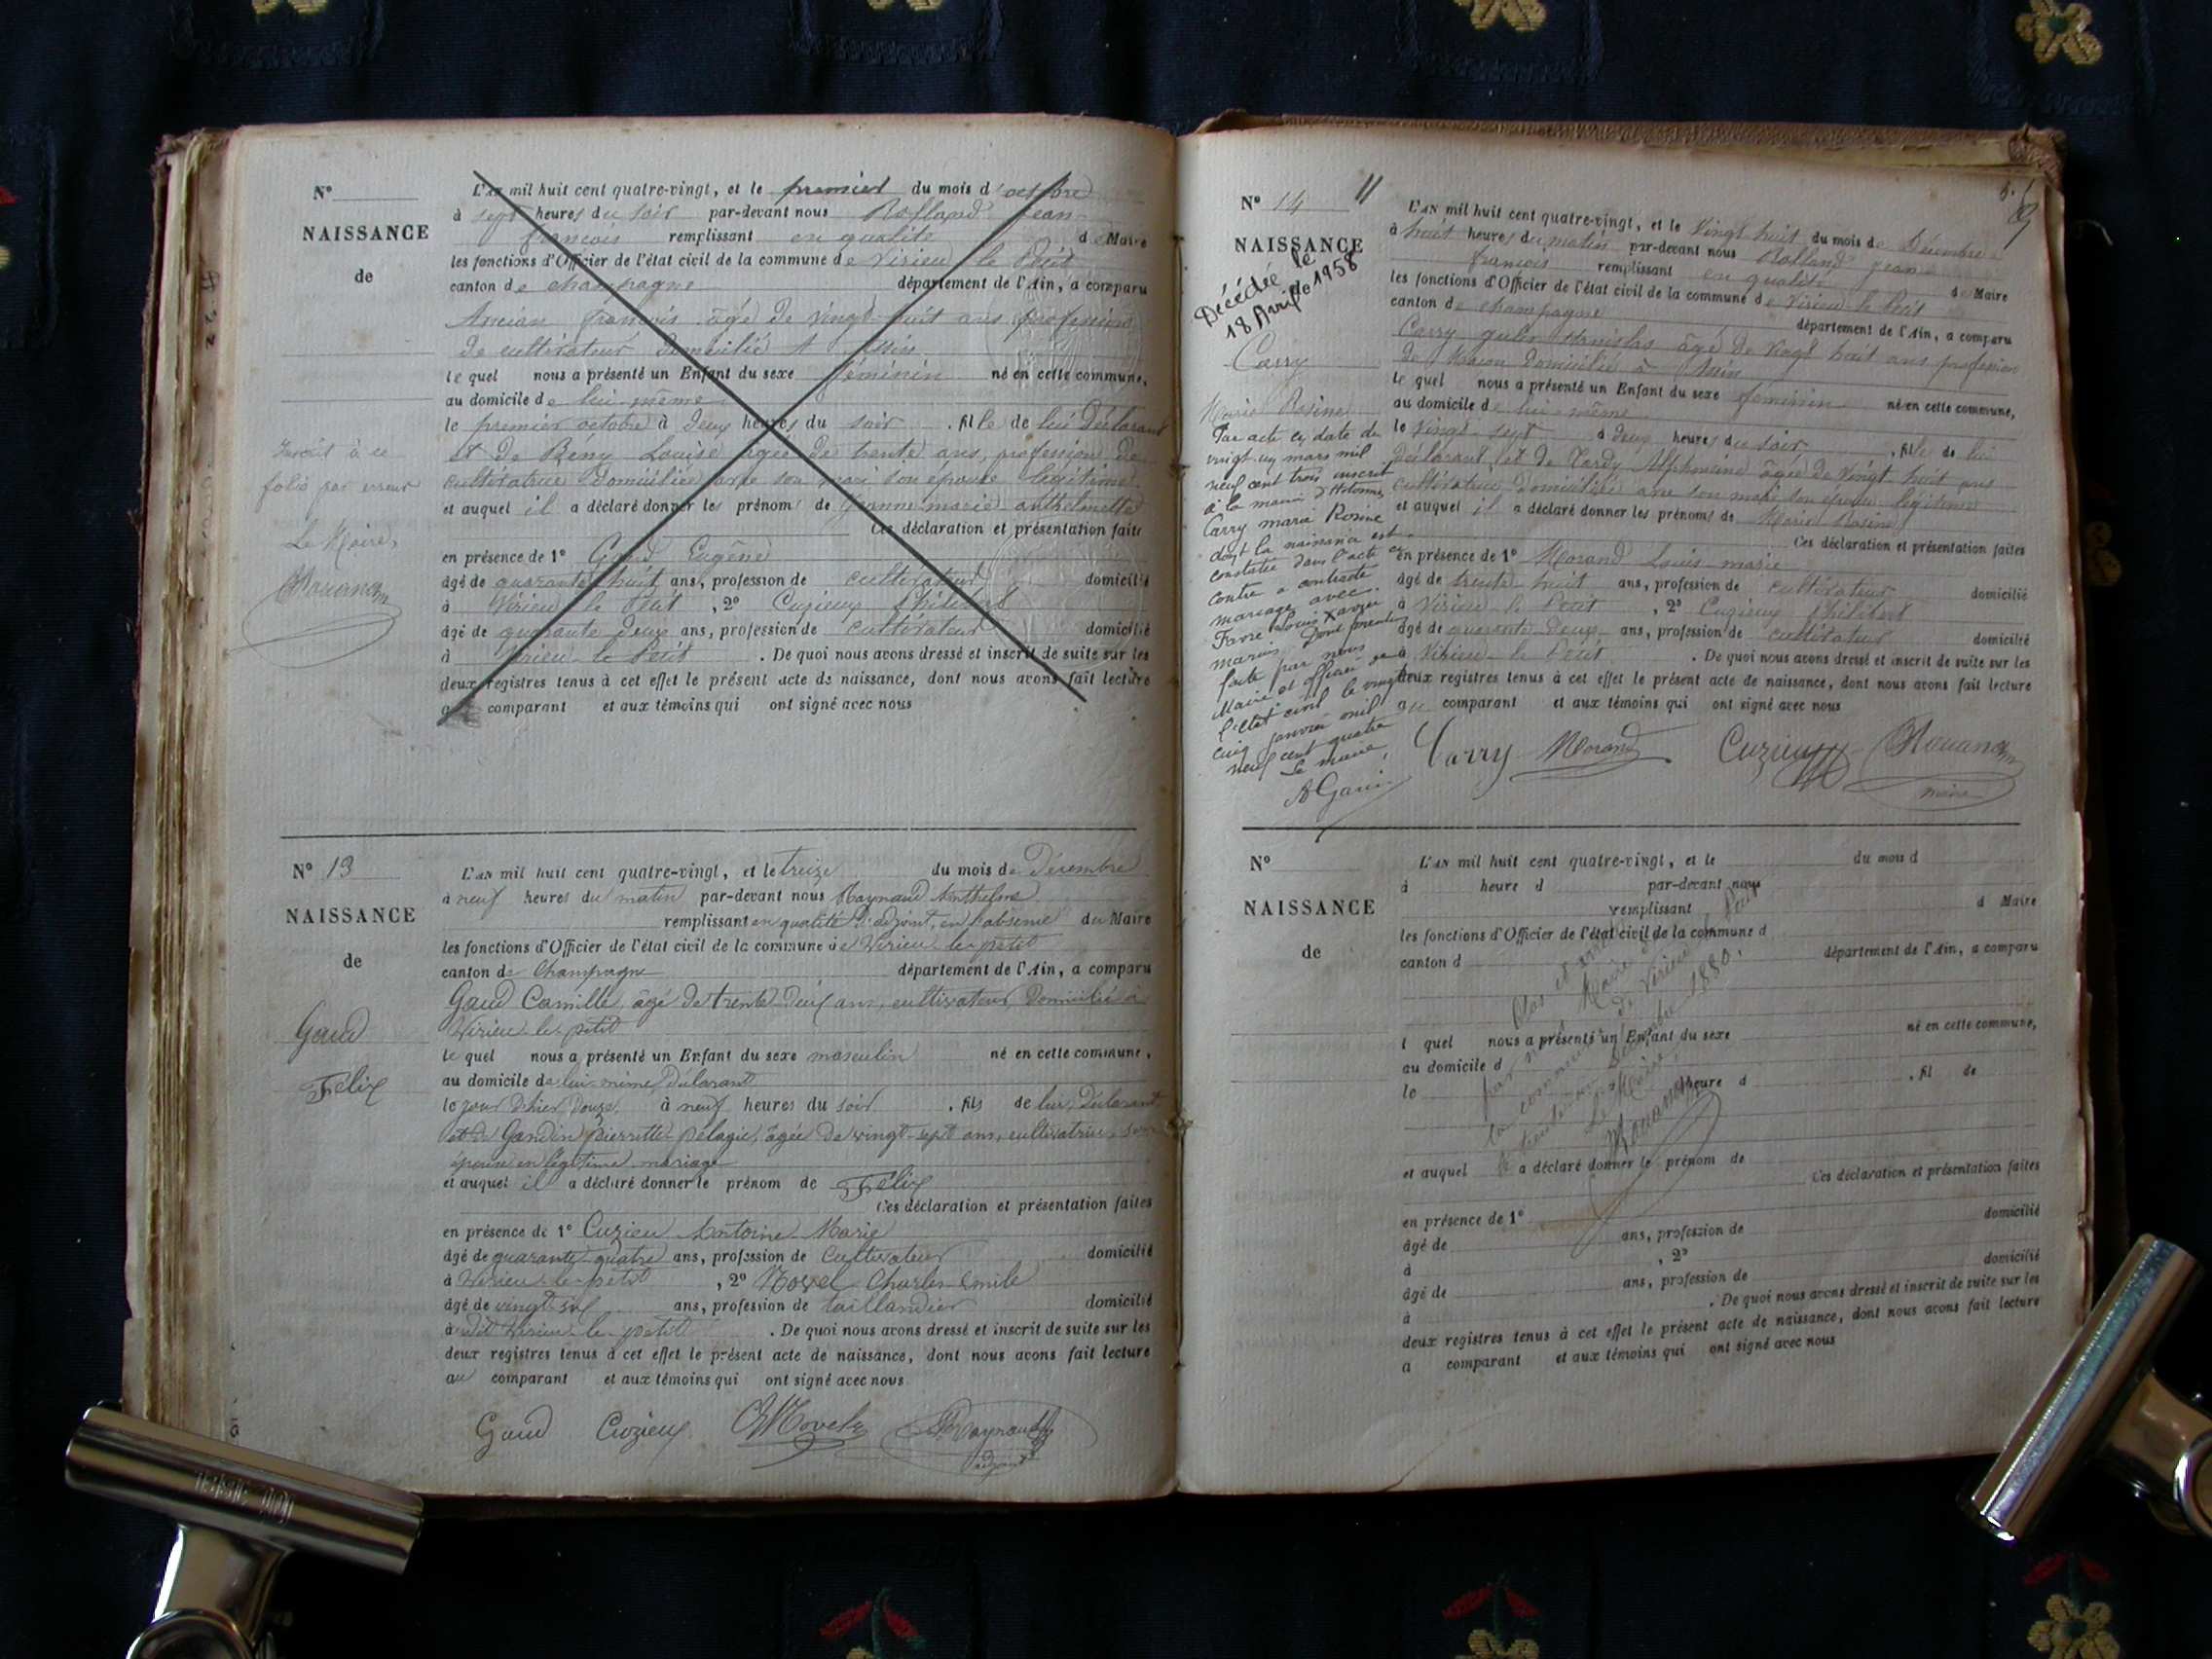 N°
NAISSANCE
de
Inscrit à ce
folio par erreur
Le Maire,
L'AN mil huit cent quatre-vingt, et le premier du mois d'octobre
à sept heures du soir par-devant nous Rolland Jean
françois remplissant en qualité de Maire
les fonctions d'Officier de l'état civil de la commune de Virieu le Petit
canton de champagne département de l'Ain, a comparu
Ancian françois âgé de vingt-huit ans profession
de cultivateur domicilié à Assin
le quel nous a présenté un Enfant du sexe féminin né en cette commune,
au domicile de lui-même
le premier octobre à deux heures du soir . fille de lui déclarant
et de Rény Louise agée de trente ans, profession de
cultivatrice domiciliée avec son mari son épouse légitime
et auquel il a déclaré donner les prénoms de Jeanne marie anthelmette
Ces déclaration et présentation faites
en présence de 1° Gaud Eugêne
âgé de quarante huit ans, profession de cultivateur domicilié
à Virieu le Petit , 2° Cuzieux Philibert
âgé de quarante deux ans, profession de cultivateur domicilié
à Virieu-le Petit . De quoi nous avons dressé et inscrit de suite sur les
deux registres tenus à cet effet le présent acte de naissance, dont nous avons fait lecture
au comparant et aux témoins qui ont signé avec nous
N° 13
NAISSANCE
de
Gaud
Félix
L'AN mil huit cent quatre-vingt, et le treize du mois de Décembre
à neuf heures du matin par-devant nous Raynaud Anthelme
remplissant en qualité d'adjoint, en l'absence du Maire
les fonctions d'Officier de l'état civil de la commune de Virieu-le-petit
canton de Champagne département de l'Ain, a comparu
Gaud Camille, âgé de trente-deux ans, cultivateur, domicilié à
Virieu-le-petit
le quel nous a présenté un Enfant du sexe masculin né en cette commune,
au domicile de lui-même, déclarant
le jour d'hier, douze, à neuf heures du soir . fils de lui, déclarant
et de Gandin pierrette pélagie, âgée de vingt-sept ans, cultivatrice, son
épouse en légitime mariage
et auquel il a déclaré donner le prénom de Félix
Ces déclaration et présentation faites
en présence de 1° Cuzieu Antoine-Marie
âgé de quarante-quatre ans, profession de Cultivateur domicilié
à Virieu-le-petit , 2° Novel Charles-Emile
âgé de vingt-six ans, profession de taillandier domicilié
à dit Virieu-le-petit . De quoi nous avons dressé et inscrit de suite sur les
deux registres tenus à cet effet le présent acte de naissance, dont nous avons fait lecture
au comparant et aux témoins qui ont signé avec nous
Gaud Cuzieux Raynaud
adjoint
N° 14
NAISSANCE
Décédée le
18 Avril 1958
Carry
Marie Rosine
Par acte en date du
vingt un mars mil
neuf cent trois inscrit
à la mairie d'Hotonnes
Carry marie Rosine
dont la naissance est
constatée dans l'acte ci
contre a contracté
mariage avec
louis Xavier
marius. Dont mention
faite par nous
Maire et officier de
l'état civil le vingt
cinq janvier mil
neuf cent quatre
Le maire,
L'AN mil huit cent quatre-vingt, et le Vingt huit du mois de Décembre
à huit heures du matin par-devant nous Rolland Jean
françois remplissant en qualité de Maire
les fonctions d'Officier de l'état civil de la commune de Virieu-le Petit
canton de champagne département de l'Ain, a comparu
Carry jules Stanislas âgé de vingt huit ans profession
de Maçon domicilié à Assin
le quel nous a présenté un Enfant du sexe féminin né en cette commune,
au domicile de lui-même
le Vingt-sept à deux heures du soir , fille de lui
déclarant, et de Tardy Alphonsine âgée de Vingt huit ans
cultivatrice domiciliée avec son mari son épouse légitime
et auquel il a déclaré donner les prénoms de Marie Rosine
Ces déclaration et présentation faites
en présence de 1° Morand Louis marie
âgé de trente-huit ans, profession de cultivateur domicilié
à Virieu-le Petit , 2° Cuzieux Philibert
âgé de quarante-deux ans, profession de cultivateur domicilié
à Virieu-le Petit . De quoi nous avons dressé et inscrit de suite sur les
deux registres tenus à cet effet le présent acte de naissance, dont nous avons fait lecture
au comparant et aux témoins qui ont signé avec nous
Carry Morand Cuzieux
maire
N°
NAISSANCE
de
L'AN mil huit cent quatre-vingt, et le du mois d
à heure d par-devant nous
remplissant d Maire
les fonctions d'Officier de l'état civil de la commune d
canton d département de l'Ain, a comparu
l quel nous a présenté un Enfant du sexe né en cette commune,
au domicile d
le heure d . fil de
et auquel a déclaré donner le prénom de
Ces déclaration et présentation faites
en présence de 1°
âgé de ans, profession de domicilié
à , 2°
âgé de ans, profession de domicilié
à . De quoi nous avons dressé et inscrit de suite sur les
deux registres tenus à cet effet le présent acte de naissance, dont nous avons fait lecture
a comparant et aux témoins qui ont signé avec nous
Clos et arrêté
par nous Maire de
la commune de Virieu le Petit
le trente un Décembre 1880.
Le Maire